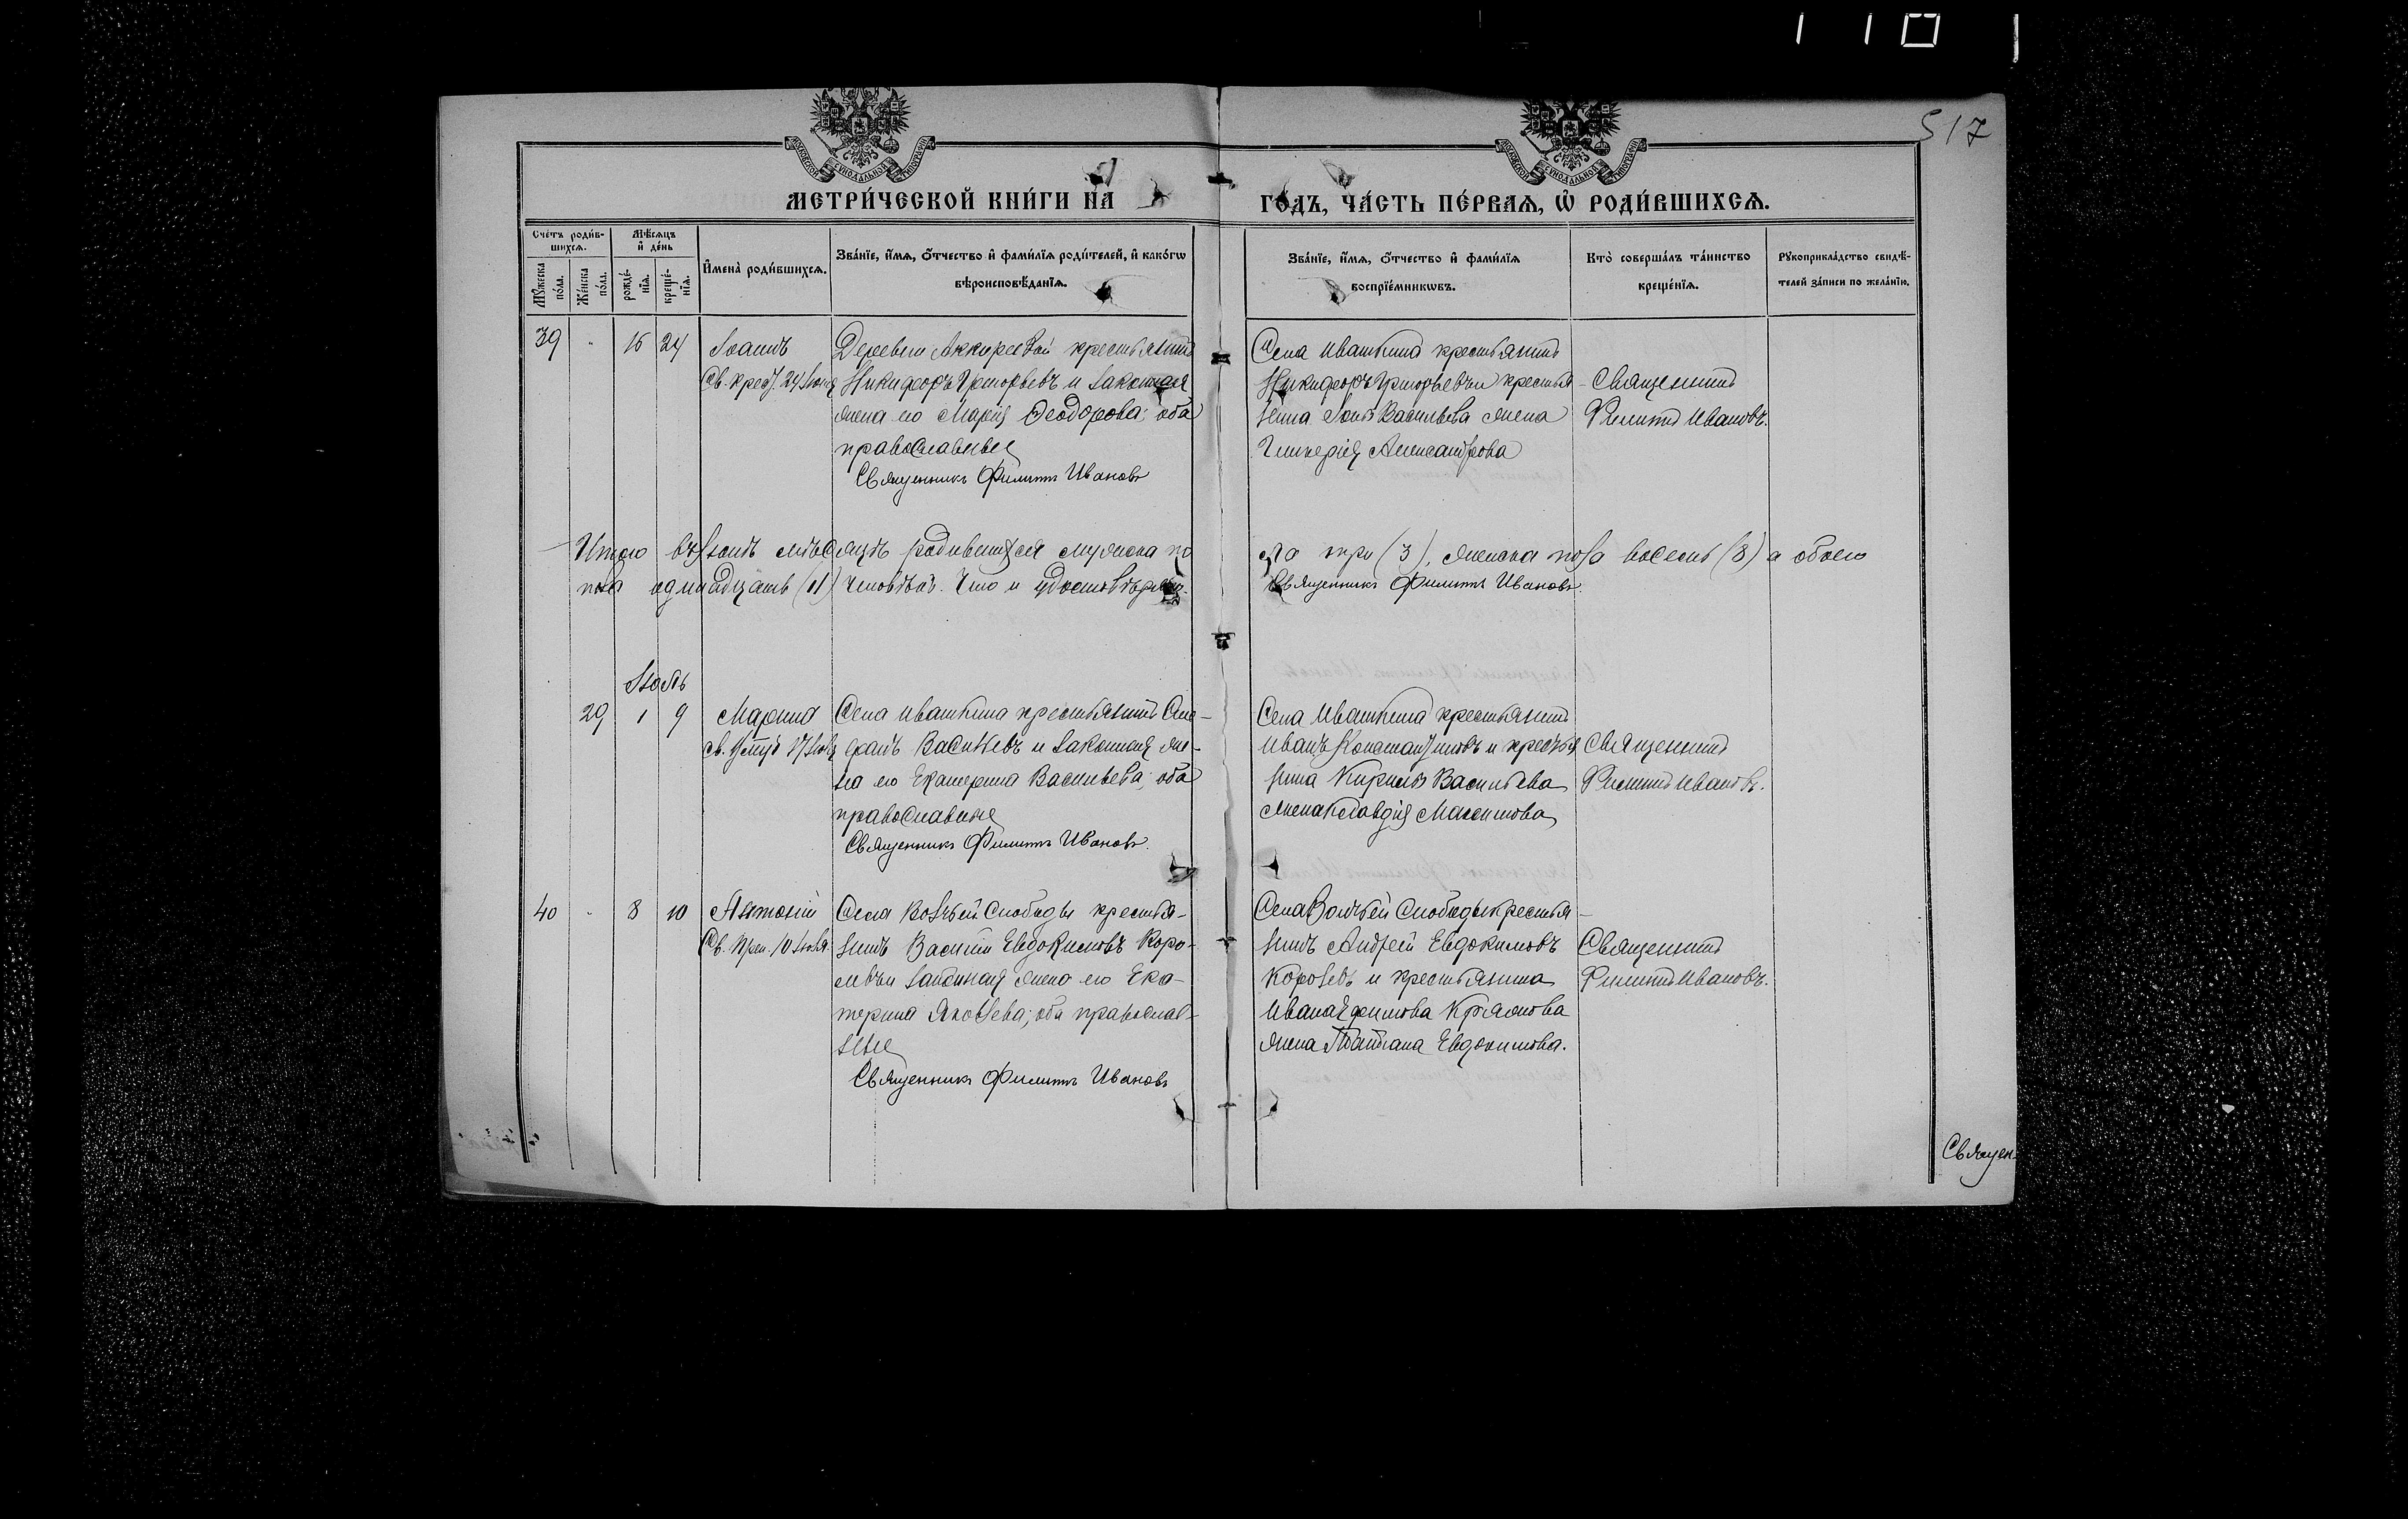 110
517
МЕТРИ́ЧЕСКОЙ КНИ́ГИ НА
ГО́ДЪ, ЧА́СТЬ ПЕ́РВАѦ, Ѡ҆ РОДИ́ВШИХСѦ.
Сче́тъ роди́вшихсѧ.
Мꙋ́жеска по́ла.
Же́нска по́ла.
Мѣ́сѧцъ и҆ де́нь
рожде́нїѧ.
креще́нїѧ.
И҆мена̀ роди́вшихсѧ.
Зва́нїе, и҆́мѧ, ѻ҆́тчество и҆ фами́лїѧ роди́телей, и҆ како́гѡ
вѣроисповѣ́данїѧ.
Зва́нїе, и҆́мѧ, ѻ҆́тчество и҆ фами́лїѧ
воспрїе́мникѡвъ.
Кто̀ соверша́лъ та́инство
креще́нїѧ.
Рꙋкоприкла́дство свидѣ́-
телей за́писи по жела́нїю.
39 " 16 24 Іоаннъ
Св. крест. 24 Іюня
Деревни крестьянинъ
Никифоръ Григорьевъ и законная
жена его Марія Ѳеодорова; оба
православные
Священникъ Филиппъ Ивановъ
Села Ивашкина крестьянинъ
Никифоръ Григорьевъ и крестья-
нина Васильева жена
Гликерія Александрова
Священникъ
Филиппъ Ивановъ.
Итого въ Іюнѣ мѣсяцѣ родившихся мужска по
ла три (3), женска пола восемь (8) а обоего
пола одиннадцать (11) человѣкъ. Что и удостовѣряю.
Священникъ Филиппъ Ивановъ.
Іюль
29 1 9 Марина
св. 17 Іюля
Села Ивашкина крестьянинъ Сте-
фанъ Васильевъ и законная же-
на его Екатерина Васильева; оба
православные
Священникъ Филиппъ Ивановъ.
Села Ивашкина крестьянинъ
Иванъ Константиновъ и крестья
нина Кирилла Васильева
жена Клавдія Максимова
Священникъ
Филиппъ Ивановъ.
40 " 8 10 Антоній
Св. Преп. 10 Іюля
Села Волчьей Слободы крестья-
нинъ Василій Евдокимовъ Коро-
левъ и законная жена его Ека-
терина Яковлева; оба православ-
ные
Священникъ Филиппъ Ивановъ
Села Волчьей Слободы крестья-
нинъ Андрей Евдокимовъ
Королевъ и крестьянина
Ивана Ефимова
жена Татіана Евдокимова.
Священникъ
Филиппъ Ивановъ.
Священ.